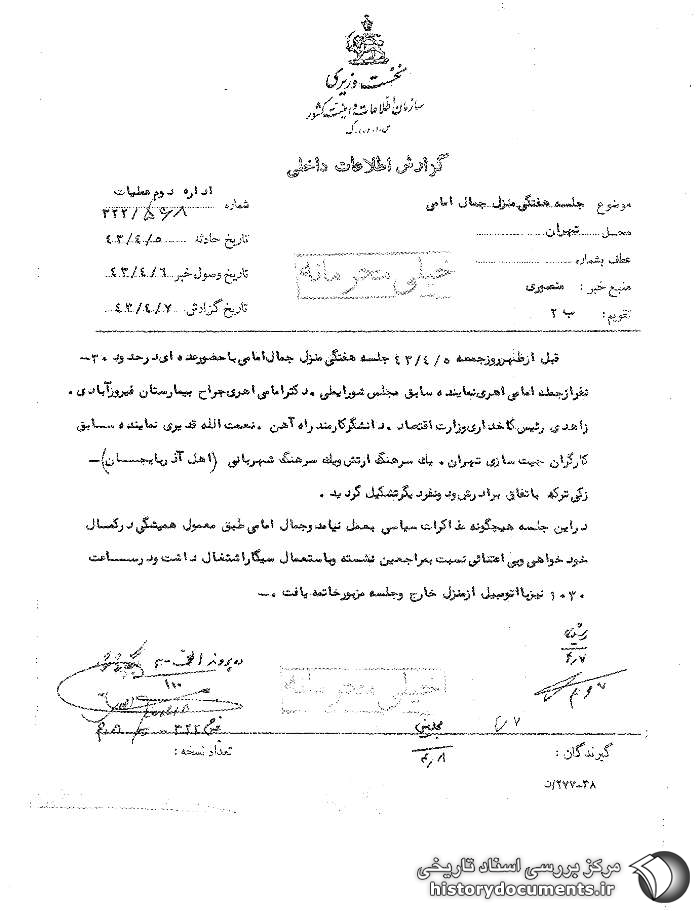 نخست وزیری
سازمان اطلاعات و امنیت کشور
س.ا.و.ا.ک
گزارش اطلاعات داخلی
موضوع جلسه هفتگی منزل جمال امامی
محل تهران
عطف بشماره
منبع خبر : منصوری
تقویم: ب ۲
اداره دوم عملیات
شماره ۳۲۲/
تاریخ حادثه ۴۳/۴/۵
تاریخ وصول خبر ۴۳/۴/۶
تاریخ گزارش ۴۳/۴/۷
خیلی محرمانه
قبل از ظهر روز جمعه ۴۳/۴/۵ جلسه هفتگی منزل جمال امامی با حضور عده ای در حدود ۳۰-
نفر از جمله امامی اهری نماینده سابق مجلس شورایملی . دکتر امامی اهری جراح بیمارستان فیروزآبادی .
زاهدی رئیس کاخداری وزارت اقتصاد . دانشگر کارمند راه آهن . نعمت الله قدیری نماینده سابق
کارگران چیت سازی تهران . یک سرهنگ ارتش ویک سرهنگ شهربانی (اهل آذربایجان) -
زکی ترکه باتفاق برادرش ودونفر دیگر تشکیل گردید .
در این جلسه هیچگونه مذاکرات سیاسی بعمل نیامد وجمال امامی طبق معمول همیشگی در کمال
خود خواهی وبی اعتنائی نسبت بمراجعین نشسته وباستعمال سیگار اشتغال داشت ودر ساعت
۱۰۳۰ نیز با اتومبیل از منزل خارج وجلسه مزبور خاتمه یافت . -
۴/۷
خیلی محرمانه
۱۰۰
۳۲۲
۴/۸
گیرندگان :
تعداد نسخه :
۲۷۷-۳۸/ت
مرکز بررسی اسناد تاریخی
historydocuments.ir